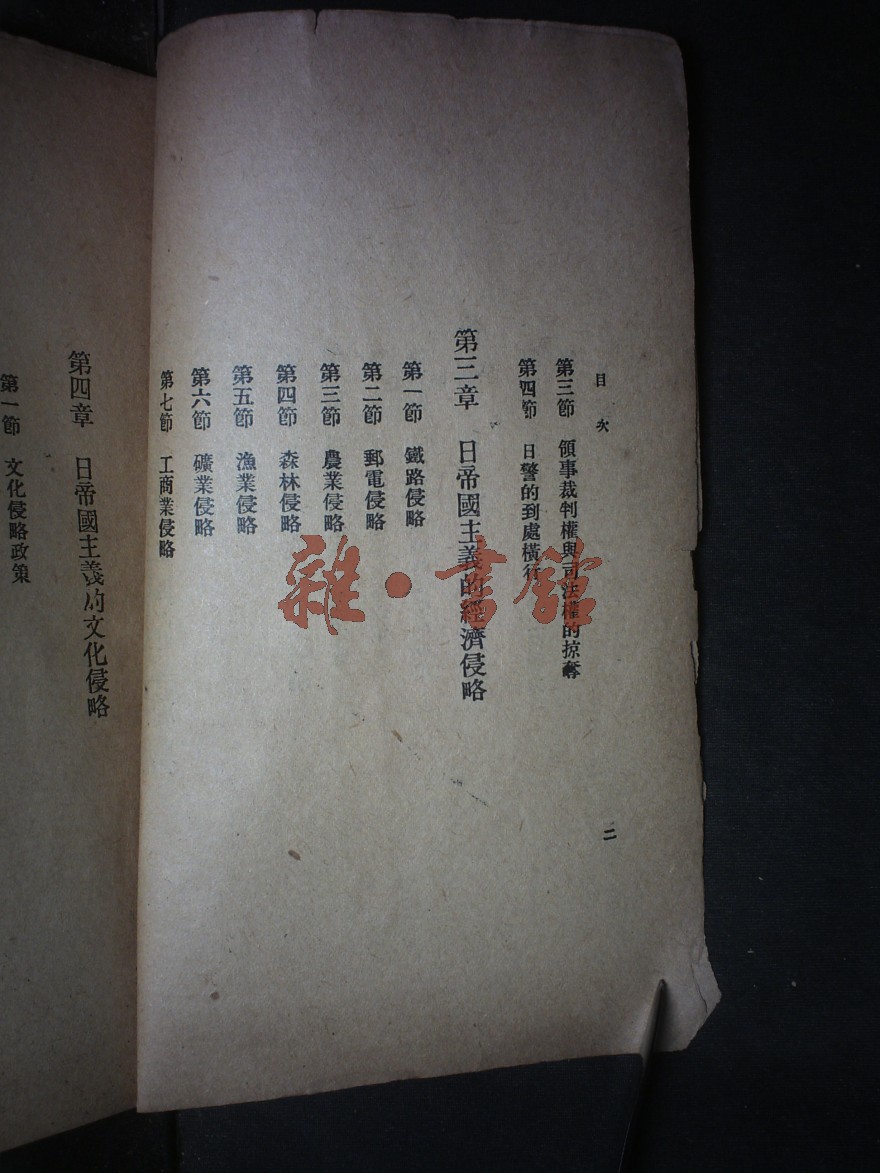 目次
第三節 領事裁判權與司法權的掠奪
第四節 日警的到處橫行
第三章 日帝國主義的經濟侵略
第一節 鐵路侵略
第二節 郵電侵略
第三節 農業侵略
第四節 森林侵略
第五節 漁業侵略
第六節 礦業侵略
第七節 工商業侵略
二
第四章 日帝國主義的文化侵略
第一節 文化侵略政策
雜·書館